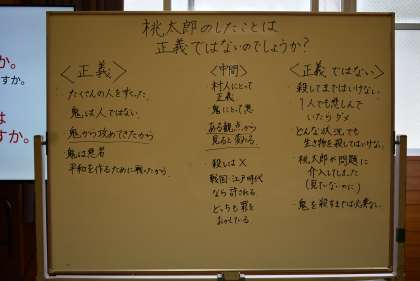 か。
すか。
は
すか。
桃太郎のしたことは
正義ではないのでしょうか?
<正義>
・たくさんの人をすくった。
・鬼は人ではない。
・鬼から攻めてきたから
・鬼は悪者
・平和を作るために戦ったから。
<中間>
・村人にとって
正義
鬼にとって悪
・ある観点から
見ると変わる
・殺しは×
戦国・江戸時代
なら許される
・どっちも罪を
おかしている
<正義ではない>
・殺してまではいけない。
・1人でも悲しんで
いたらダメ
・どんな状況でも
生き物を殺してはいけない。
・桃太郎が問題に
介入してしまった
(見てないのに)
・鬼を殺すまでは必要ない。